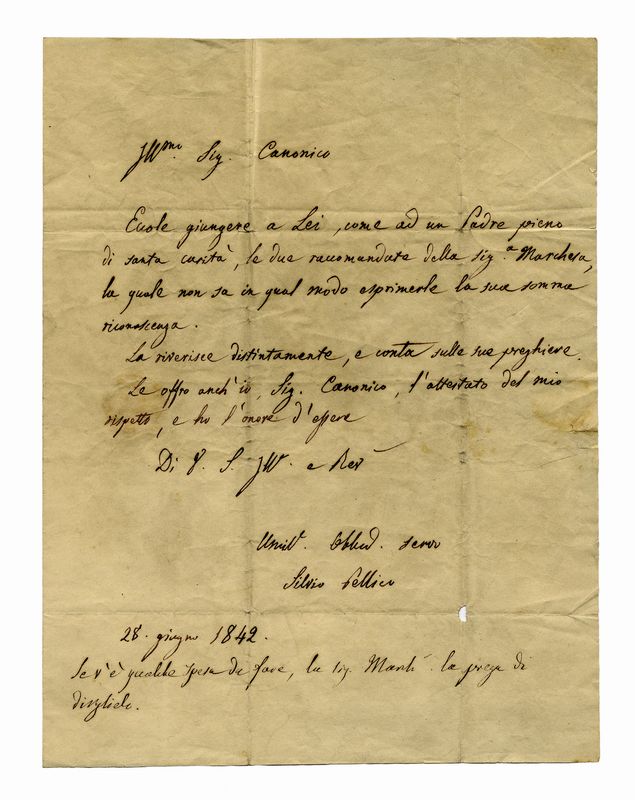 Ill.mo Sig. Canonico
Ecole giungere a Lei, come ad un Padre pieno
di santa carità, le due raccomandate della Sig.a Marchesa,
la quale non sa in qual modo esprimerle la sua somma
riconoscenza.
La riverisce distintamente, e conta sulle sue preghiere.
Le offro anch'io, Sig. Canonico, l'attestato del mio
rispetto, e ho l'onore d'essere
Di V. S. Ill. e Rev
Umil. Obbed. servo
Silvio Pellico
28. giugno 1842.
Se v'è qualche spesa da fare, la sig. March. la prega di
dirglielo.